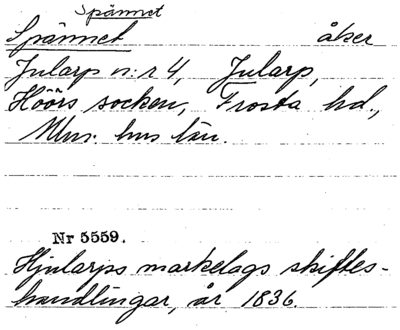 Spännet
Spännet åker
Jularp n:r 4, Jularp,
Höörs socken, Frosta hd.,
Mlm. hus län.
Nr 5559.
Hjularps markelags skiftes-
handlingar, år 1836.